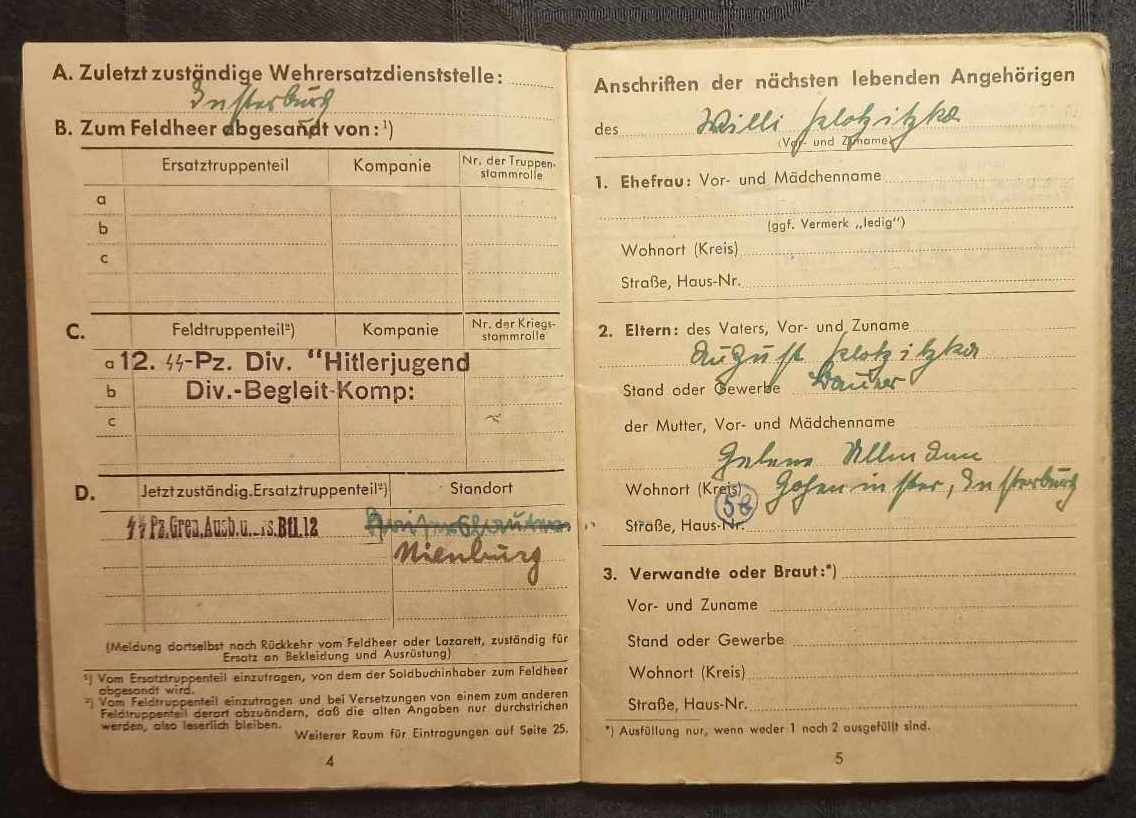 A. Zuletzt zuständige Wehrersatzdienststelle:
Insterburg
B. Zum Feldheer abgesandt von:¹)
Ersatztruppenteil Kompanie Nr. der Truppen-
stammrolle
a
b
c
C. Feldtruppenteil²) Kompanie Nr. der Kriegs-
stammrolle
a 12. SS-Pz. Div. "Hitlerjugend
b Div.-Begleit-Komp:
c
D. Jetzt zuständig. Ersatztruppenteil²) Standort
SS Pz.Gren.Ausb.u. Btl.12
Nienburg
(Meldung dortselbst nach Rückkehr vom Feldheer oder Lazarett, zuständig für
Ersatz an Bekleidung und Ausrüstung)
¹) Vom Ersatztruppenteil einzutragen, von dem der Soldbuchinhaber zum Feldheer
abgesandt wird.
²) Vom Feldtruppenteil einzutragen und bei Versetzungen von einem zum anderen
Feldtruppenteil derart abzuändern, daß die alten Angaben nur durchstrichen
werden, also leserlich bleiben.
Weiterer Raum für Eintragungen auf Seite 25.
4
Anschriften der nächsten lebenden Angehörigen
des Willi Plotzitzka
(Vor- und Zuname)
1. Ehefrau: Vor- und Mädchenname
(ggf. Vermerk „ledig")
Wohnort (Kreis)
Straße, Haus-Nr.
2. Eltern: des Vaters, Vor- und Zuname
August Plotzitzka
Stand oder Gewerbe Bauer
der Mutter, Vor- und Mädchenname
Helene
Wohnort (Kreis) Insterburg
58
Straße, Haus-Nr.
3. Verwandte oder Braut:*)
Vor- und Zuname
Stand oder Gewerbe
Wohnort (Kreis)
Straße, Haus-Nr.
*) Ausfüllung nur, wenn weder 1 noch 2 ausgefüllt sind.
5